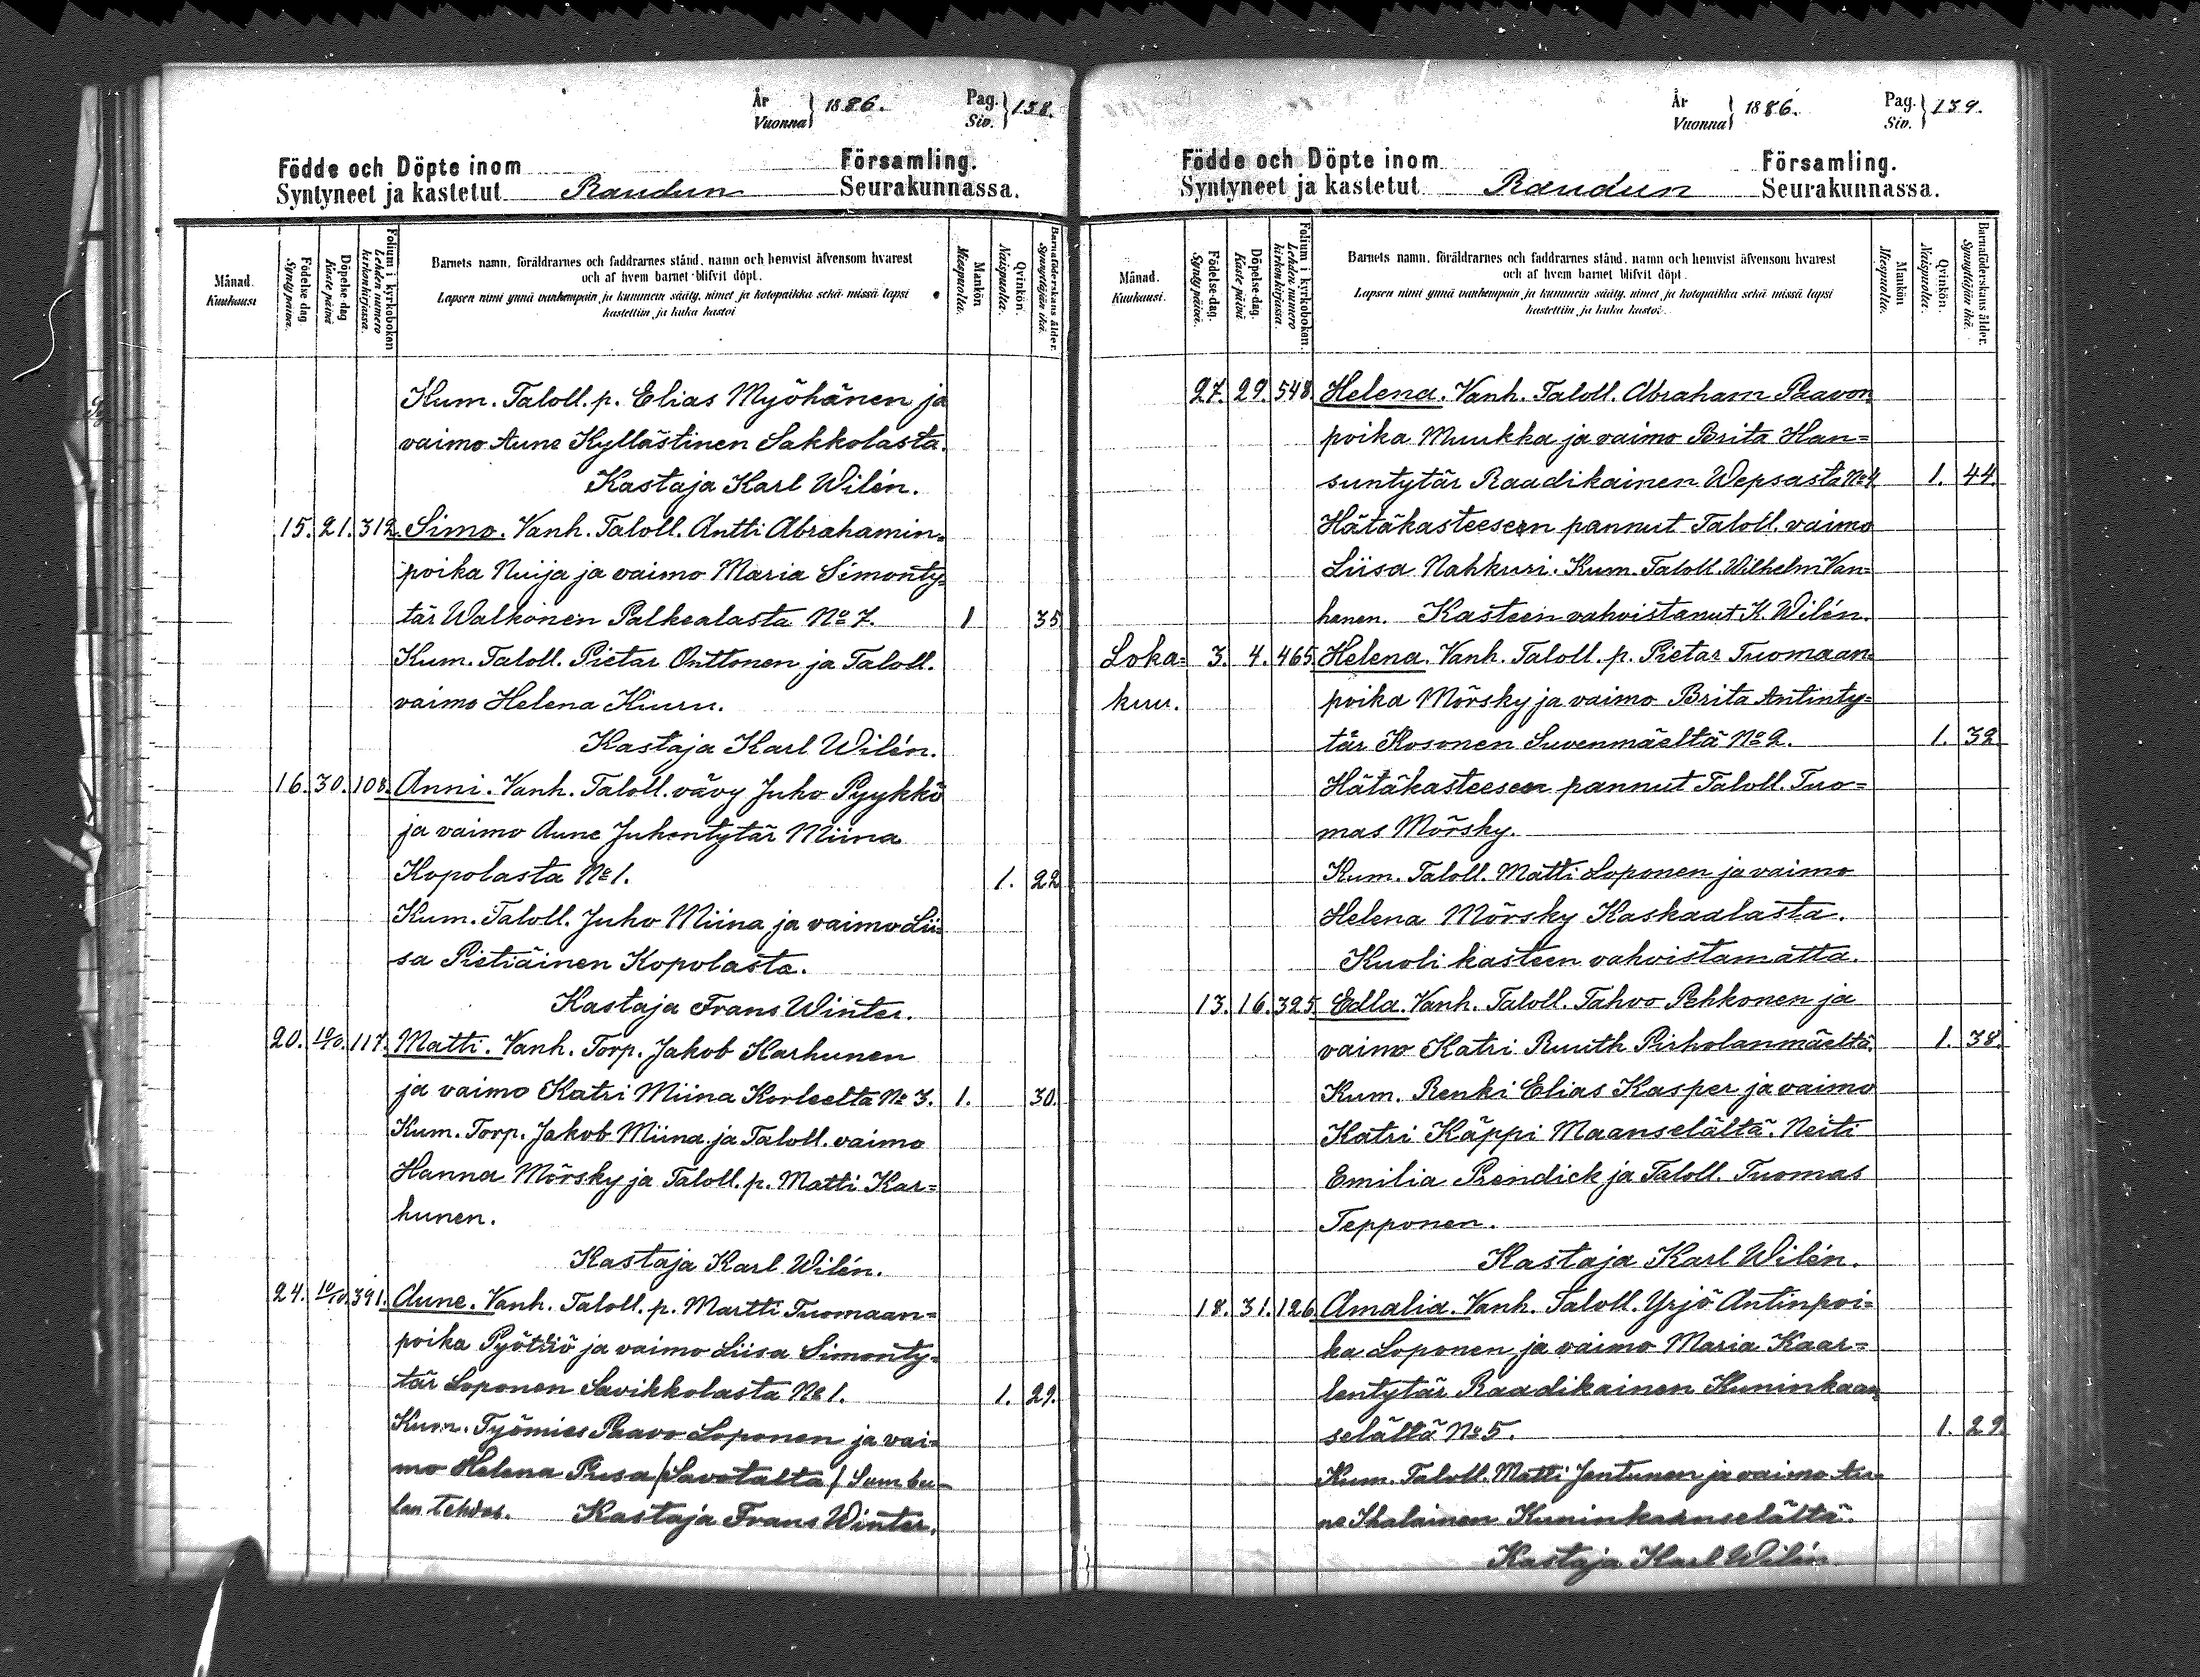 År
Vuonna } 1886.
Pag.
Siv. } 138.
Födde och Döpte inom Församling.
Syntyneet ja kastetut Raudun Seurakunnassa.
Månad.
Kuukausi
Födelse-dag
Synty päivä.
Döpelse-dag
Kaste päivä
Folium i kyrkoboken
Lehden numero kirkonkirjassa.
Barnets namn, föräldrarnes och faddrarnes stånd, namn och hemvist äfvensom hvarest
och af hvem barnet blifvit döpt.
Lapsen nimi ynnä vanhempain ja kummein sääty, nimet ja kotopaikka sekä missä lapsi
kastettiin ja kuka kastoi
Mankön
Miespuolta.
Qvinkön.
Naispuolta.
Barnaföderskans ålder.
Synnyttäjän ikä.
Kum. Taloll. p. Elias Myöhänen ja
vaimo Aune Kyllästinen Sakkolasta.
Kastaja Karl Wilén.
15. 21. 312. Simo. Vanh. Taloll. Antti Abrahamin=
poika Nuija ja vaimo Maria Simonty=
tär Walkonen Palkealasta No 7. 1 35
Kum. Taloll. Pietar Onttonen ja Taloll.
vaimo Helena Kiuru.
Kastaja Karl Wilén.
16. 30. 108. Anni. Vanh. Taloll. vävy Juho Pyykkö
ja vaimo Aune Juhontytär Miina
Kopolasta No 1. 1. 22
Kum. Taloll. Juho Miina ja vaimo Lii=
sa Pietiäinen Kopolasta.
Kastaja Frans Winter.
20. 10/10. 117. Matti. Vanh. Torp. Jakob Karhunen
ja vaimo Katri Miina Korleelta No 3. 1. 30.
Kum. Torp. Jakob Miina ja Taloll. vaimo
Hanna Mörsky ja Taloll. p. Matti Kar=
hunen.
Kastaja Karl Wilén.
24. 10/10. 391. Aune. Vanh. Taloll. p. Martti Tuomaan=
poika Pyötsiö ja vaimo Liisa Simonty=
tär Loponen Savikkolasta No 1. 1. 29.
Kum. Työmies Paavo Loponen ja vai=
mo Helena Pusa /Savotalta/ Sumbu=
lan tehdas. Kastaja Frans Winter.
År
Vuonna } 1886.
Pag.
Siv. } 139.
Födde och Döpte inom Församling.
Syntyneet ja kastetut Raudun Seurakunnassa.
Månad.
Kuukausi.
Födelse-dag.
Synty päivä.
Döpelse-dag.
Kaste päivä
Folium i kyrkoboken.
Lehden numero kirkonkirjassa.
Barnets namn, föräldrarnes och faddrarnes stånd, namn och hemvist äfvensom hvarest
och af hvem barnet blifvit döpt.
Lapsen nimi ynnä vanhempain ja kummein sääty, nimet ja kotopaikka sekä missä lapsi
kastettiin ja kuka kastoi.
Mankön
Miespuolta.
Qvinkön.
Naispuolta.
Barnaföderskans ålder.
Synnyttäjän ikä.
27. 29. 548. Helena. Vanh. Taloll. Abraham Paavon
poika Muukka ja vaimo Brita Han=
suntytär Raadikainen Wepsastä No 4 1. 44.
Hätäkasteeseen pannut Taloll. vaimo
Liisa Nahkuri. Kum. Taloll. Wilhelm Van=
hanen. Kasteen vahvistanut K. Wilén.
Loka= 3. 4. 465. Helena. Vanh. Taloll. p. Pietar Tuomaan=
kuu. poika Mörsky ja vaimo Brita Antinty=
tär Kosonen Suvenmäeltä No 2. 1. 32
Hätäkasteeseen pannut Taloll. Tuo=
mas Mörsky.
Kum. Taloll. Matti Loponen ja vaimo
Helena Mörsky Kaskaalasta.
Kuoli kasteen vahvistamatta.
13. 16. 325. Edla. Vanh. Taloll. Tahvo Pehkonen ja
vaimo Katri Ruuth Pirholanmäeltä. 1. 38.
Kum. Renki Elias Kasper ja vaimo
Katri Käppi Maanselältä. Neiti
Emilia Rendick ja Taloll. Tuomas
Tepponen.
Kastaja Karl Wilén.
18. 31. 126. Amalia. Vanh. Taloll. Yrjö Antinpoi=
ka Loponen ja vaimo Maria Kaar=
lentytär Raadikainen Kuninkaan
selältä No 5. 1. 29.
Kum. Taloll. Matti Jantunen ja vaimo Au=
ne Ihalainen Kuninkaanselältä.
Kastaja Karl Wilén.